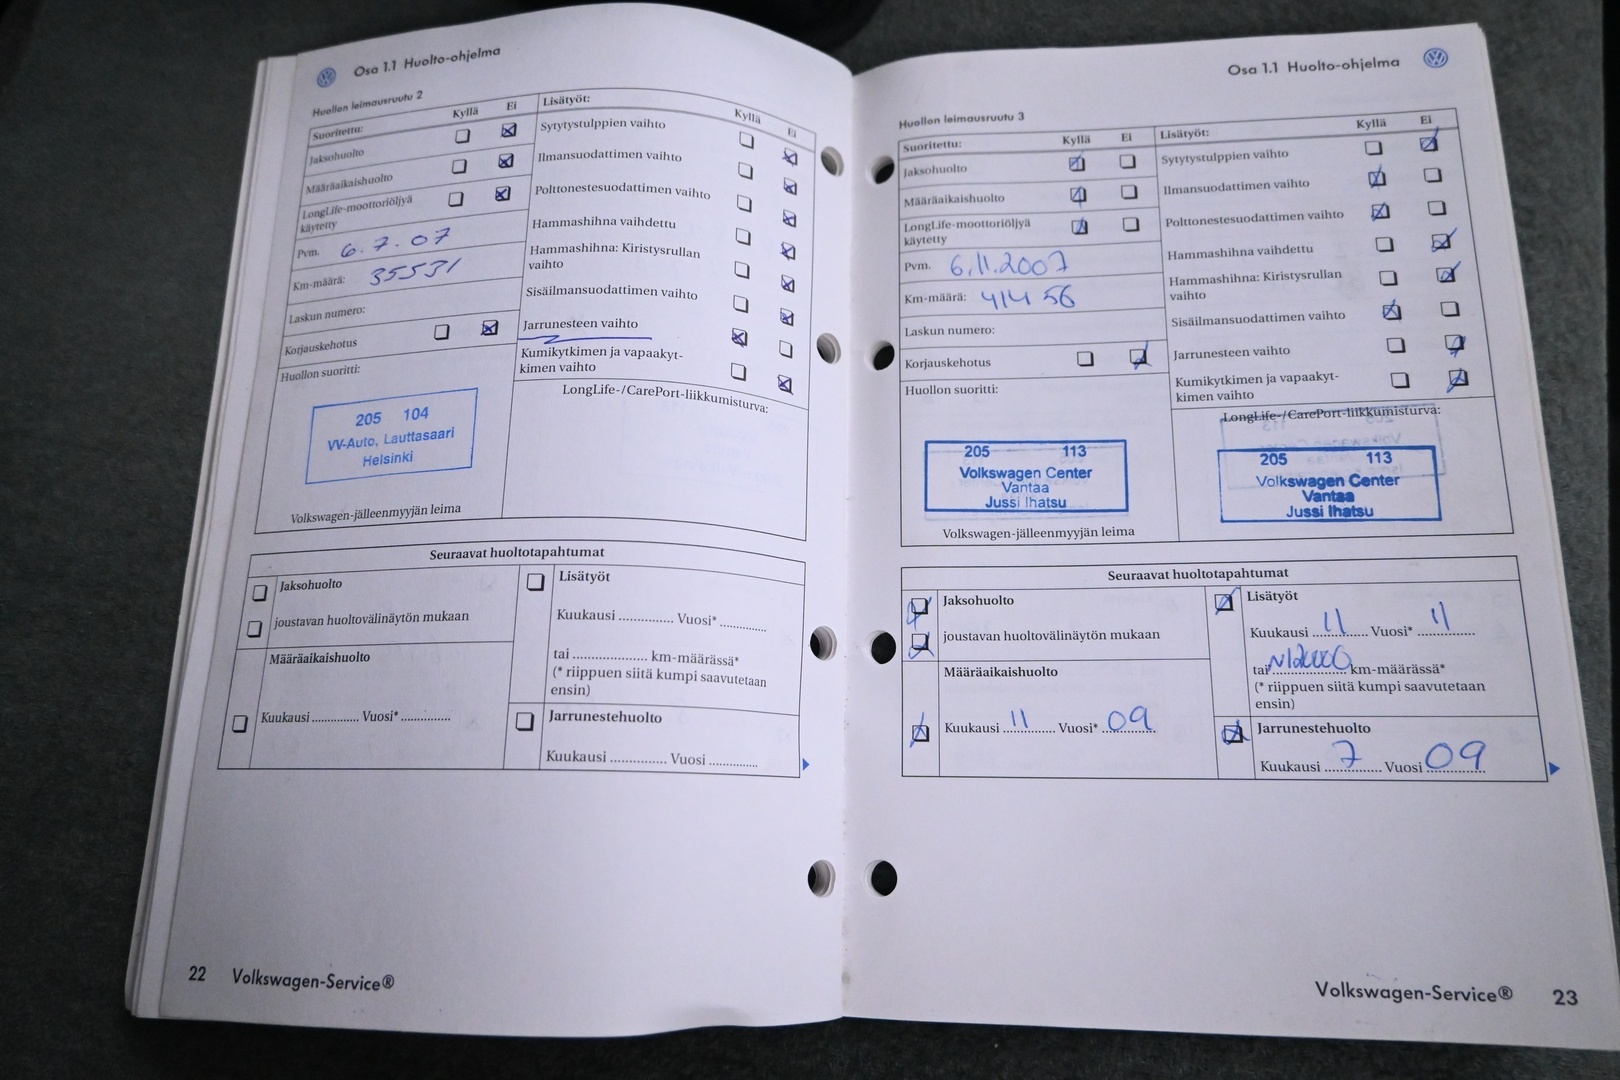 Osa 1.1 Huolto-ohjelma
Huollon leimausruutu 2
Suoritettu: Kyllä Ei
Jaksohuolto
Määräaikaishuolto
LongLife-moottoriöljyä
käytetty
Pvm. 6.7.07
Km-määrä: 35531
Laskun numero:
Korjauskehotus
Huollon suoritti:
205 104
VV-Auto, Lauttasaari
Helsinki
Volkswagen-jälleenmyyjän leima
Lisätyöt: Kyllä Ei
Sytytystulppien vaihto
Ilmansuodattimen vaihto
Polttonestesuodattimen vaihto
Hammashihna vaihdettu
Hammashihna: Kiristysrullan
vaihto
Sisäilmansuodattimen vaihto
Jarrunesteen vaihto
Kumikytkimen ja vapaakyt-
kimen vaihto
LongLife-/CarePort-liikkumisturva:
Seuraavat huoltotapahtumat
Jaksohuolto
joustavan huoltovälinäytön mukaan
Määräaikaishuolto
Kuukausi .............. Vuosi* ..............
Lisätyöt
Kuukausi .............. Vuosi* ..............
tai .................... km-määrässä*
(* riippuen siitä kumpi saavutetaan
ensin)
Jarrunestehuolto
Kuukausi .............. Vuosi ..............
22 Volkswagen-Service®
Osa 1.1 Huolto-ohjelma
Huollon leimausruutu 3
Suoritettu: Kyllä Ei
Jaksohuolto
Määräaikaishuolto
LongLife-moottoriöljyä
käytetty
Pvm. 6.11.2007
Km-määrä: 41456
Laskun numero:
Korjauskehotus
Huollon suoritti:
205 113
Volkswagen Center
Vantaa
Jussi Ihatsu
Volkswagen-jälleenmyyjän leima
Lisätyöt: Kyllä Ei
Sytytystulppien vaihto
Ilmansuodattimen vaihto
Polttonestesuodattimen vaihto
Hammashihna vaihdettu
Hammashihna: Kiristysrullan
vaihto
Sisäilmansuodattimen vaihto
Jarrunesteen vaihto
Kumikytkimen ja vapaakyt-
kimen vaihto
LongLife-/CarePort-liikkumisturva:
205 113
Volkswagen Center
Vantaa
Jussi Ihatsu
Seuraavat huoltotapahtumat
Jaksohuolto
joustavan huoltovälinäytön mukaan
Määräaikaishuolto
Kuukausi 11 Vuosi* 09
Lisätyöt
Kuukausi 11 Vuosi* 11
tai km-määrässä*
(* riippuen siitä kumpi saavutetaan
ensin)
Jarrunestehuolto
Kuukausi 7 Vuosi 09
Volkswagen-Service® 23